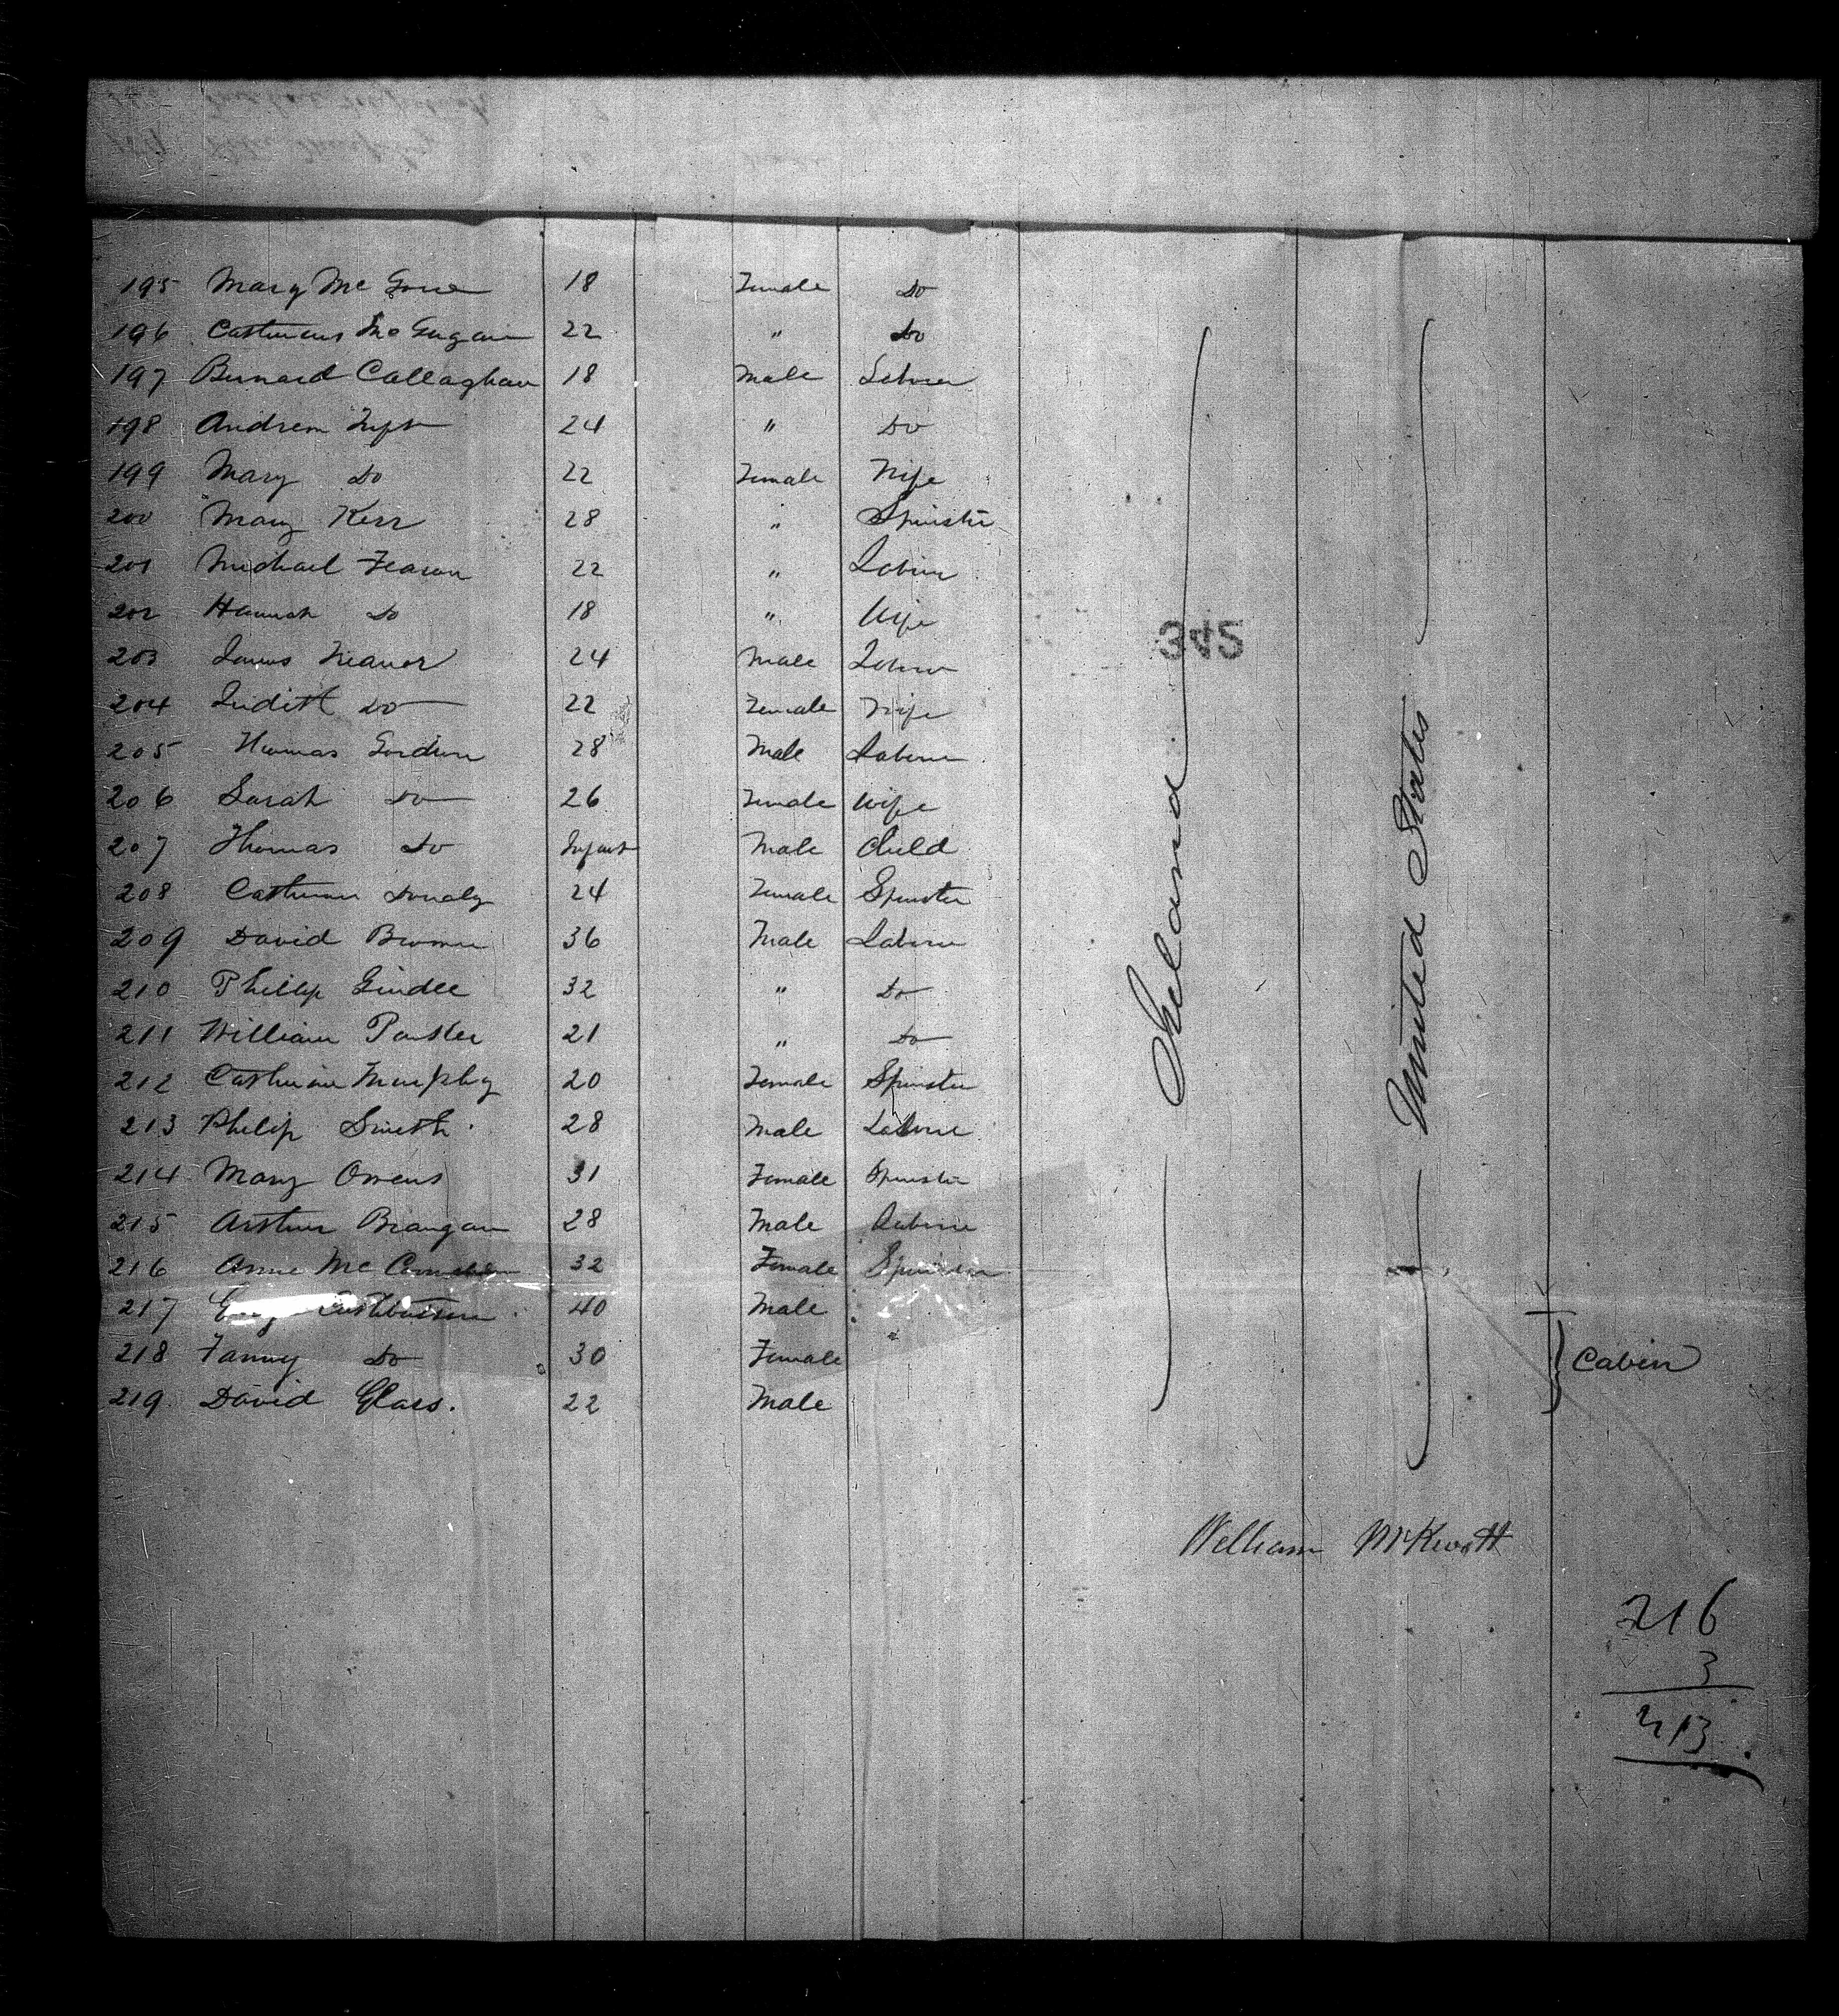 195 Mary Mc Gone 18 Female Do
196 Catherine Mc Gugan 22 " Do
197 Bernard Callaghan 18 Male Labourer
198 Andrew 24 " Do
199 Mary Do 22 Female Wife
200 Mary Kerr 28 " Spinster
201 Michael Fearon 22 " Labourer
202 Hannah Do 18 " Wife
203 James 24 Male Labourer
204 Judith Do 22 Female Wife
205 Thomas Gordon 28 Male Labourer
206 Sarah Do 26 Female Wife
207 Thomas Do Infant Male Child
208 Catherine Donaly 24 Female Spinster
209 David Brown 36 Male Labourer
210 Phillip 32 " Do
211 William 21 " Do
212 Catherine Murphy 20 Female Spinster
213 Philip Smith 28 Male Labourer
214 Mary Owens 31 Female Spinster
215 Arthur Brangan 28 Male Labourer
216 Anne Mc 32 Female Spinster
217 40 Male
218 Fanny Do 30 Female
219 David Glass. 22 Male
Ireland
345
United States
Cabin
William McKevitt
216
3
213